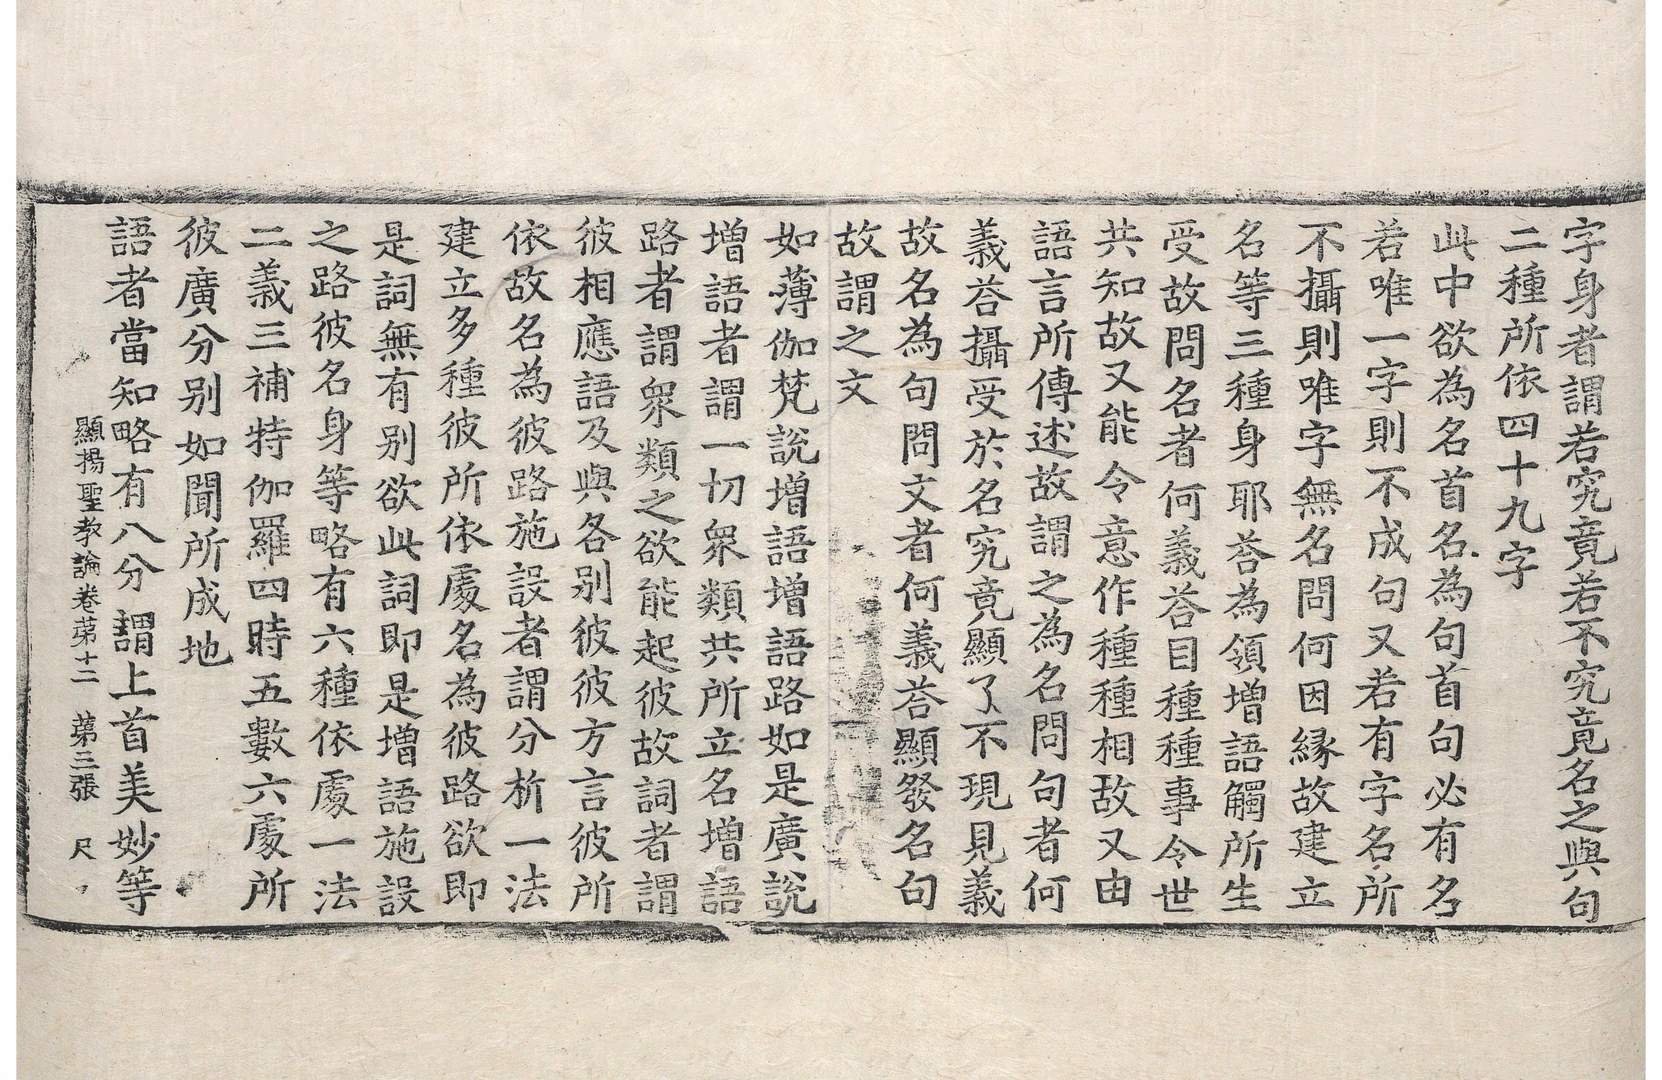 字身者謂若究竟若不究竟名之與句
二種所依四十九字
此中欲為名首名為句首句必有名
若唯一字則不成句又若有字名所
不攝則唯字無名問何因緣故建立
名等三種身耶荅為領增語觸所生
受故問名者何義荅目種種事令世
共知故又能令意作種種相故又由
語言所傳述故謂之為名問句者何
義荅攝受於名究竟顯了不現見義
故名為句問文者何義荅顯發名句
故謂之文
如薄伽梵說增語增語路如是廣說
增語者謂一切衆類共所立名增語
路者謂衆類之欲能起彼故詞者謂
彼相應語及與各别彼彼方言彼所
依故名為彼路施設者謂分析一法
建立多種彼所依處名為彼路欲即
是詞無有别欲此詞即是增語施設
之路彼名身等略有六種依處一法
二義三補特伽羅四時五數六處所
彼廣分别如聞所成地
語者當知略有八分謂上首美妙等
顯揚聖教論卷苐十二　苐三張　尺